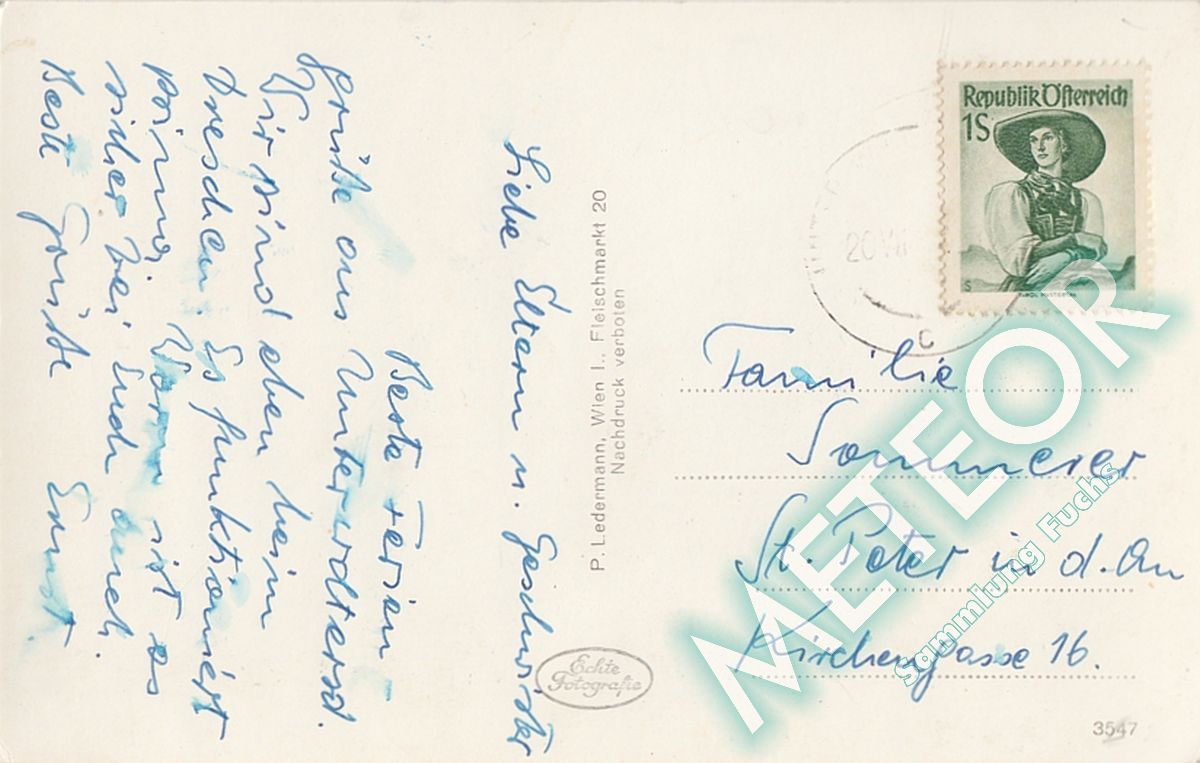 Liebe Eltern u. Geschwister
Beste Ferien
grüße aus Unterwaltersd.
Wir sind eben beim
Dreschen. Es funktioniert
prima. Warm ist es
sicher bei Euch auch.
Beste Grüße Ernst.
P. Ledermann, Wien I., Fleischmarkt 20
Nachdruck verboten
Echte
Fotografie
Republik Österreich
1S
S
TIROL PUSTERTAL
20 VII
c
Familie
Sommerer
St. Peter in d. Au
Kirchengasse 16.
3547
METEOR
Sammlung Fuchs